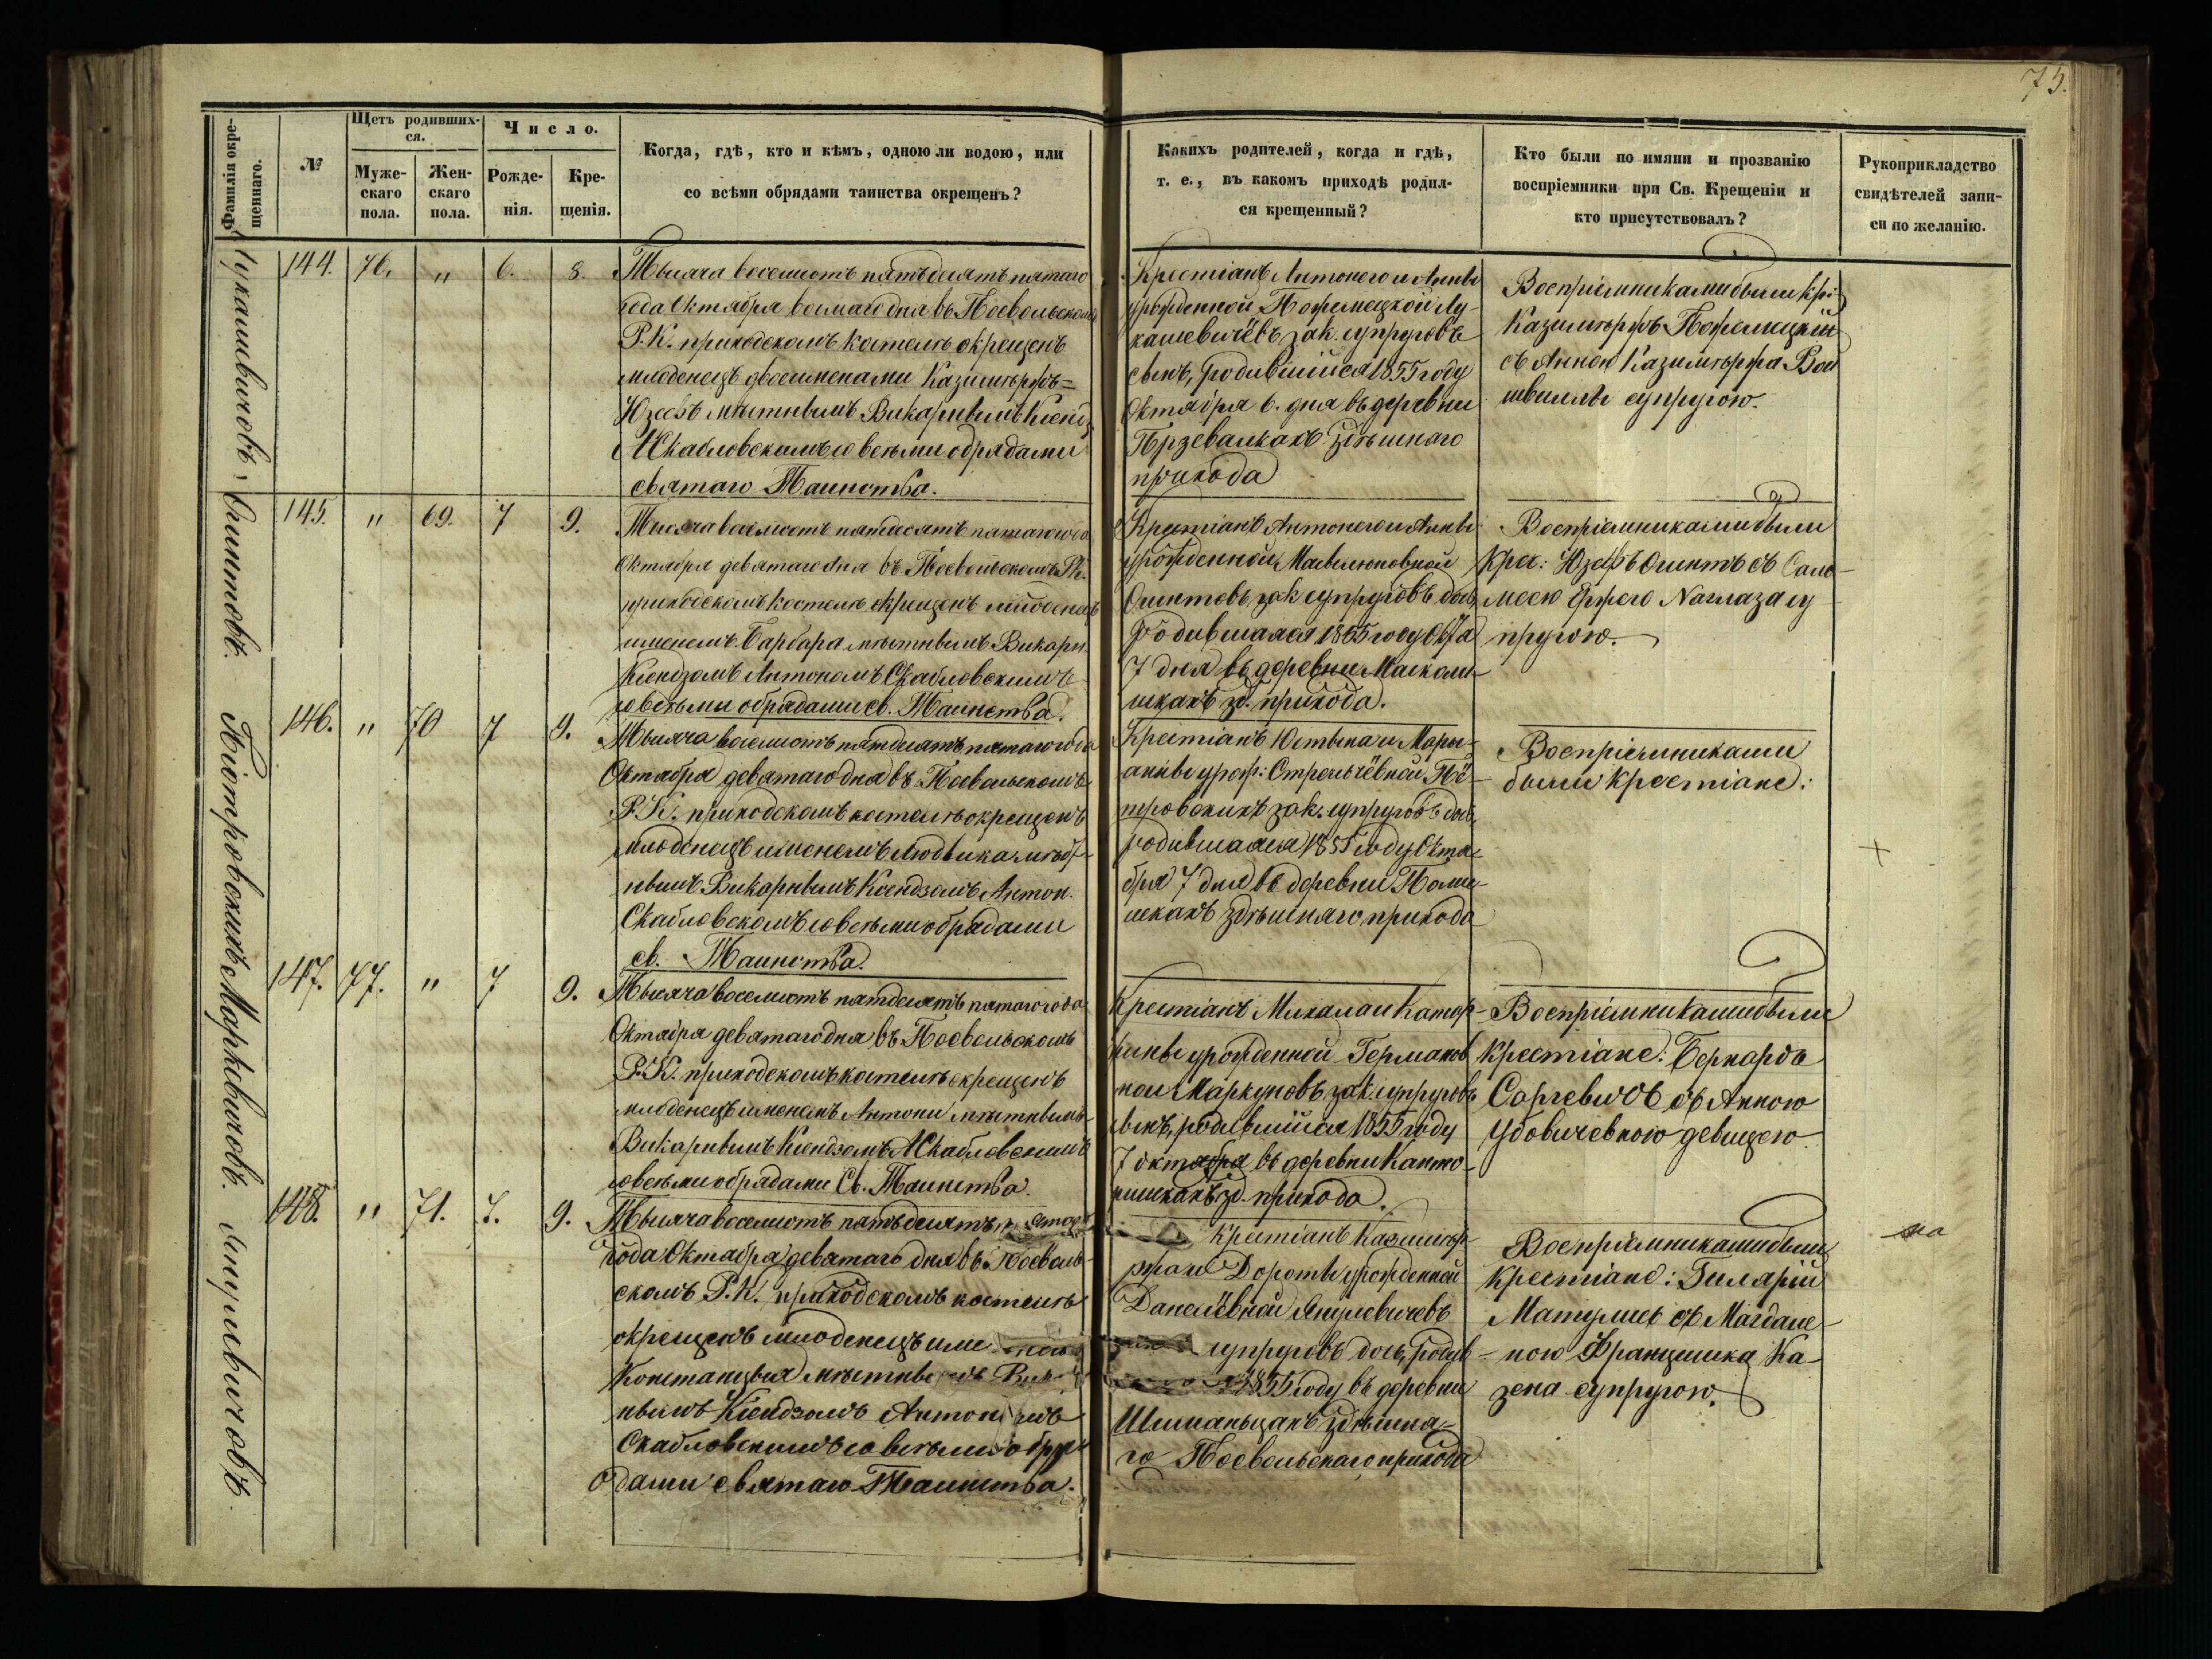 75.
Фамилія окре-
щеннаго.
№
Щетъ родивших-
ся.
Муже-
скаго
пола.
Жен-
скаго
пола.
Число.
Рожде-
нія.
Кре-
щенія.
Когда, гдѣ, кто и кѣмъ, одною ли водою, или
со всѣми обрядами таинства окрещенъ?
Какихъ родителей, когда и гдѣ,
т. е., въ какомъ приходѣ родил-
ся крещенный?
Кто были по имяни и прозванію
воспріемники при Св. Крещеніи и
кто присутствовалъ?
Рукоприкладство
свидѣтелей запи-
си по желанію.
Лукашевичовъ.
144. 76. " 6. 8.
Тысяча восемсотъ пятьдесятъ пятаго
года Октября восмаго дня въ Посвольскомъ
Р. К. приходскомъ костелѣ окрещенъ
младенецъ двоеименами Казимѣржъ=
Юзефъ мѣстнымъ Викарнымъ Ксендз
А Скабловскимъ со всѣми обрядами
святаго Таинства.
Крестіанъ Антонего и Анны
урожденной Пожемецкой Лу-
кашевичёвъ зак. супруговъ
сынъ, родившійся 1855 году
Октября 6. дня въ деревни
Прзевалкахъ здѣшнаго
прихода
Воспріемниками были Кр:
Казимѣржъ Пожемецкій
съ Анною Казимѣржа
супругою.
Олинтовъ.
145. " 69. 7 9.
Тысяча восемсотъ пятдесятъ пятаго года
Октября девятаго дня въ Посвольскомъ Рк.
приходскомъ костелѣ окрещенъ младенецъ
именемъ Барбара мѣстнымъ Викарн.
Ксендзомъ Антономъ Скабловскимъ
со всѣми обрядами св. Таинства.
Крестіанъ Антонего и Анны
урожденной
Олинтовъ зак супруговъ дочь,
родившаяся 1855 году Окта
7 дня въ деревни Масколи-
шкахъ зд. прихода.
Воспріемниками были
Крес: Юзефъ Олинтъ съ Сало-
меею Ержего Наглаза су
пругою.
Піотровскихъ
146. " 70 7 9.
Тысяча восемсотъ пятдесятъ пятаго года
Октября девятаго дня въ Посвольскомъ
Р. К. приходскомъ костелѣ окрещенъ
младенецъ именемъ Людвика мѣст-
нымъ Викарнымъ Ксендзомъ Антон.
Скабловскомъ со всѣми обрядами
св. Таинства.
Крестіанъ Юстына и Мары-
анны урож: Стрельчёвной Пё-
тровскихъ зак. супруговъ дочь,
родившаяся 1855 году Октя-
бря 7 дня въ деревни
здѣшняго прихода
Воспріемниками
были Крестіане:
Маркевичовъ.
147. 77. " 7 9.
Тысяча восемсотъ пятдесятъ пятаго года
Октября девятаго дня въ Посвольскомъ
Р. К. приходскомъ костелѣ окрещенъ
младенецъ именемъ Антони мѣстнымъ
Викарнымъ Ксендзомъ А Скабловскимъ
со всѣми обрядами Св. Таинства.
Крестіанъ Михала и Катар-
жины урожденной Германов
ной Маркуновъ зак. супруговъ
сынъ, родившійся 1855 году
7 октября въ деревни Канто-
нишкахъ зд. прихода.
Воспріемниками были
Крестіане: Бернардъ
Саргевичъ съ Анною
Удовичевною девицею
Янулевичовъ.
148. " 71. 7. 9.
Тысяча восемсотъ пятьдесятъ пятого
года Октября девятаго дня въ Посволь-
скомъ Р. К. приходскомъ костелѣ
окрещенъ младенецъ име
Констанцыя мѣстны
нымъ Ксендзомъ Антон мъ
Скабловскимъ со всѣми обря
дами святаго Таинства.
Крестіанъ Казимѣр-
жа и Дороты урожденной
Данелёвной Янулевичевъ
супруговъ дочь, родив
1855 году въ деревни
здѣшна-
го Посвольскаго прихода
Воспріемниками были
Крестіане: Гилярій
Матулисъ съ Магдале-
ною Францишка Ка-
зена супругою.